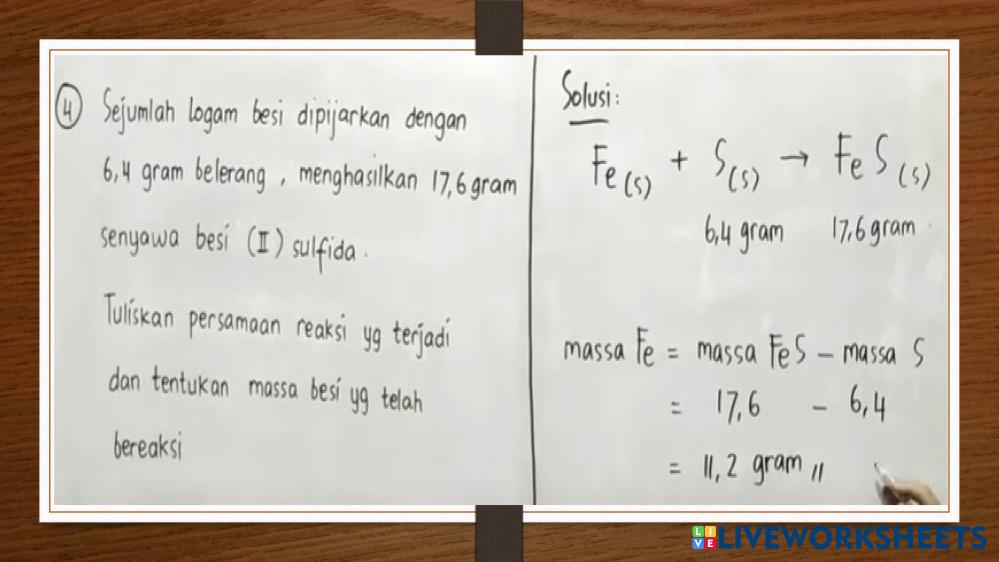 4 Sejumlah logam besi dipijarkan dengan
6,4 gram belerang, menghasilkan 17,6 gram
senyawa besi (II) sulfida.
Tuliskan persamaan reaksi yg terjadi
dan tentukan massa besi yg telah
bereaksi
Solusi:
Fe(s) + S(s) → FeS(s)
6,4 gram 17,6 gram
massa Fe = massa FeS - massa S
= 17,6 - 6,4
= 11,2 gram //
LIVEWORKSHEETS